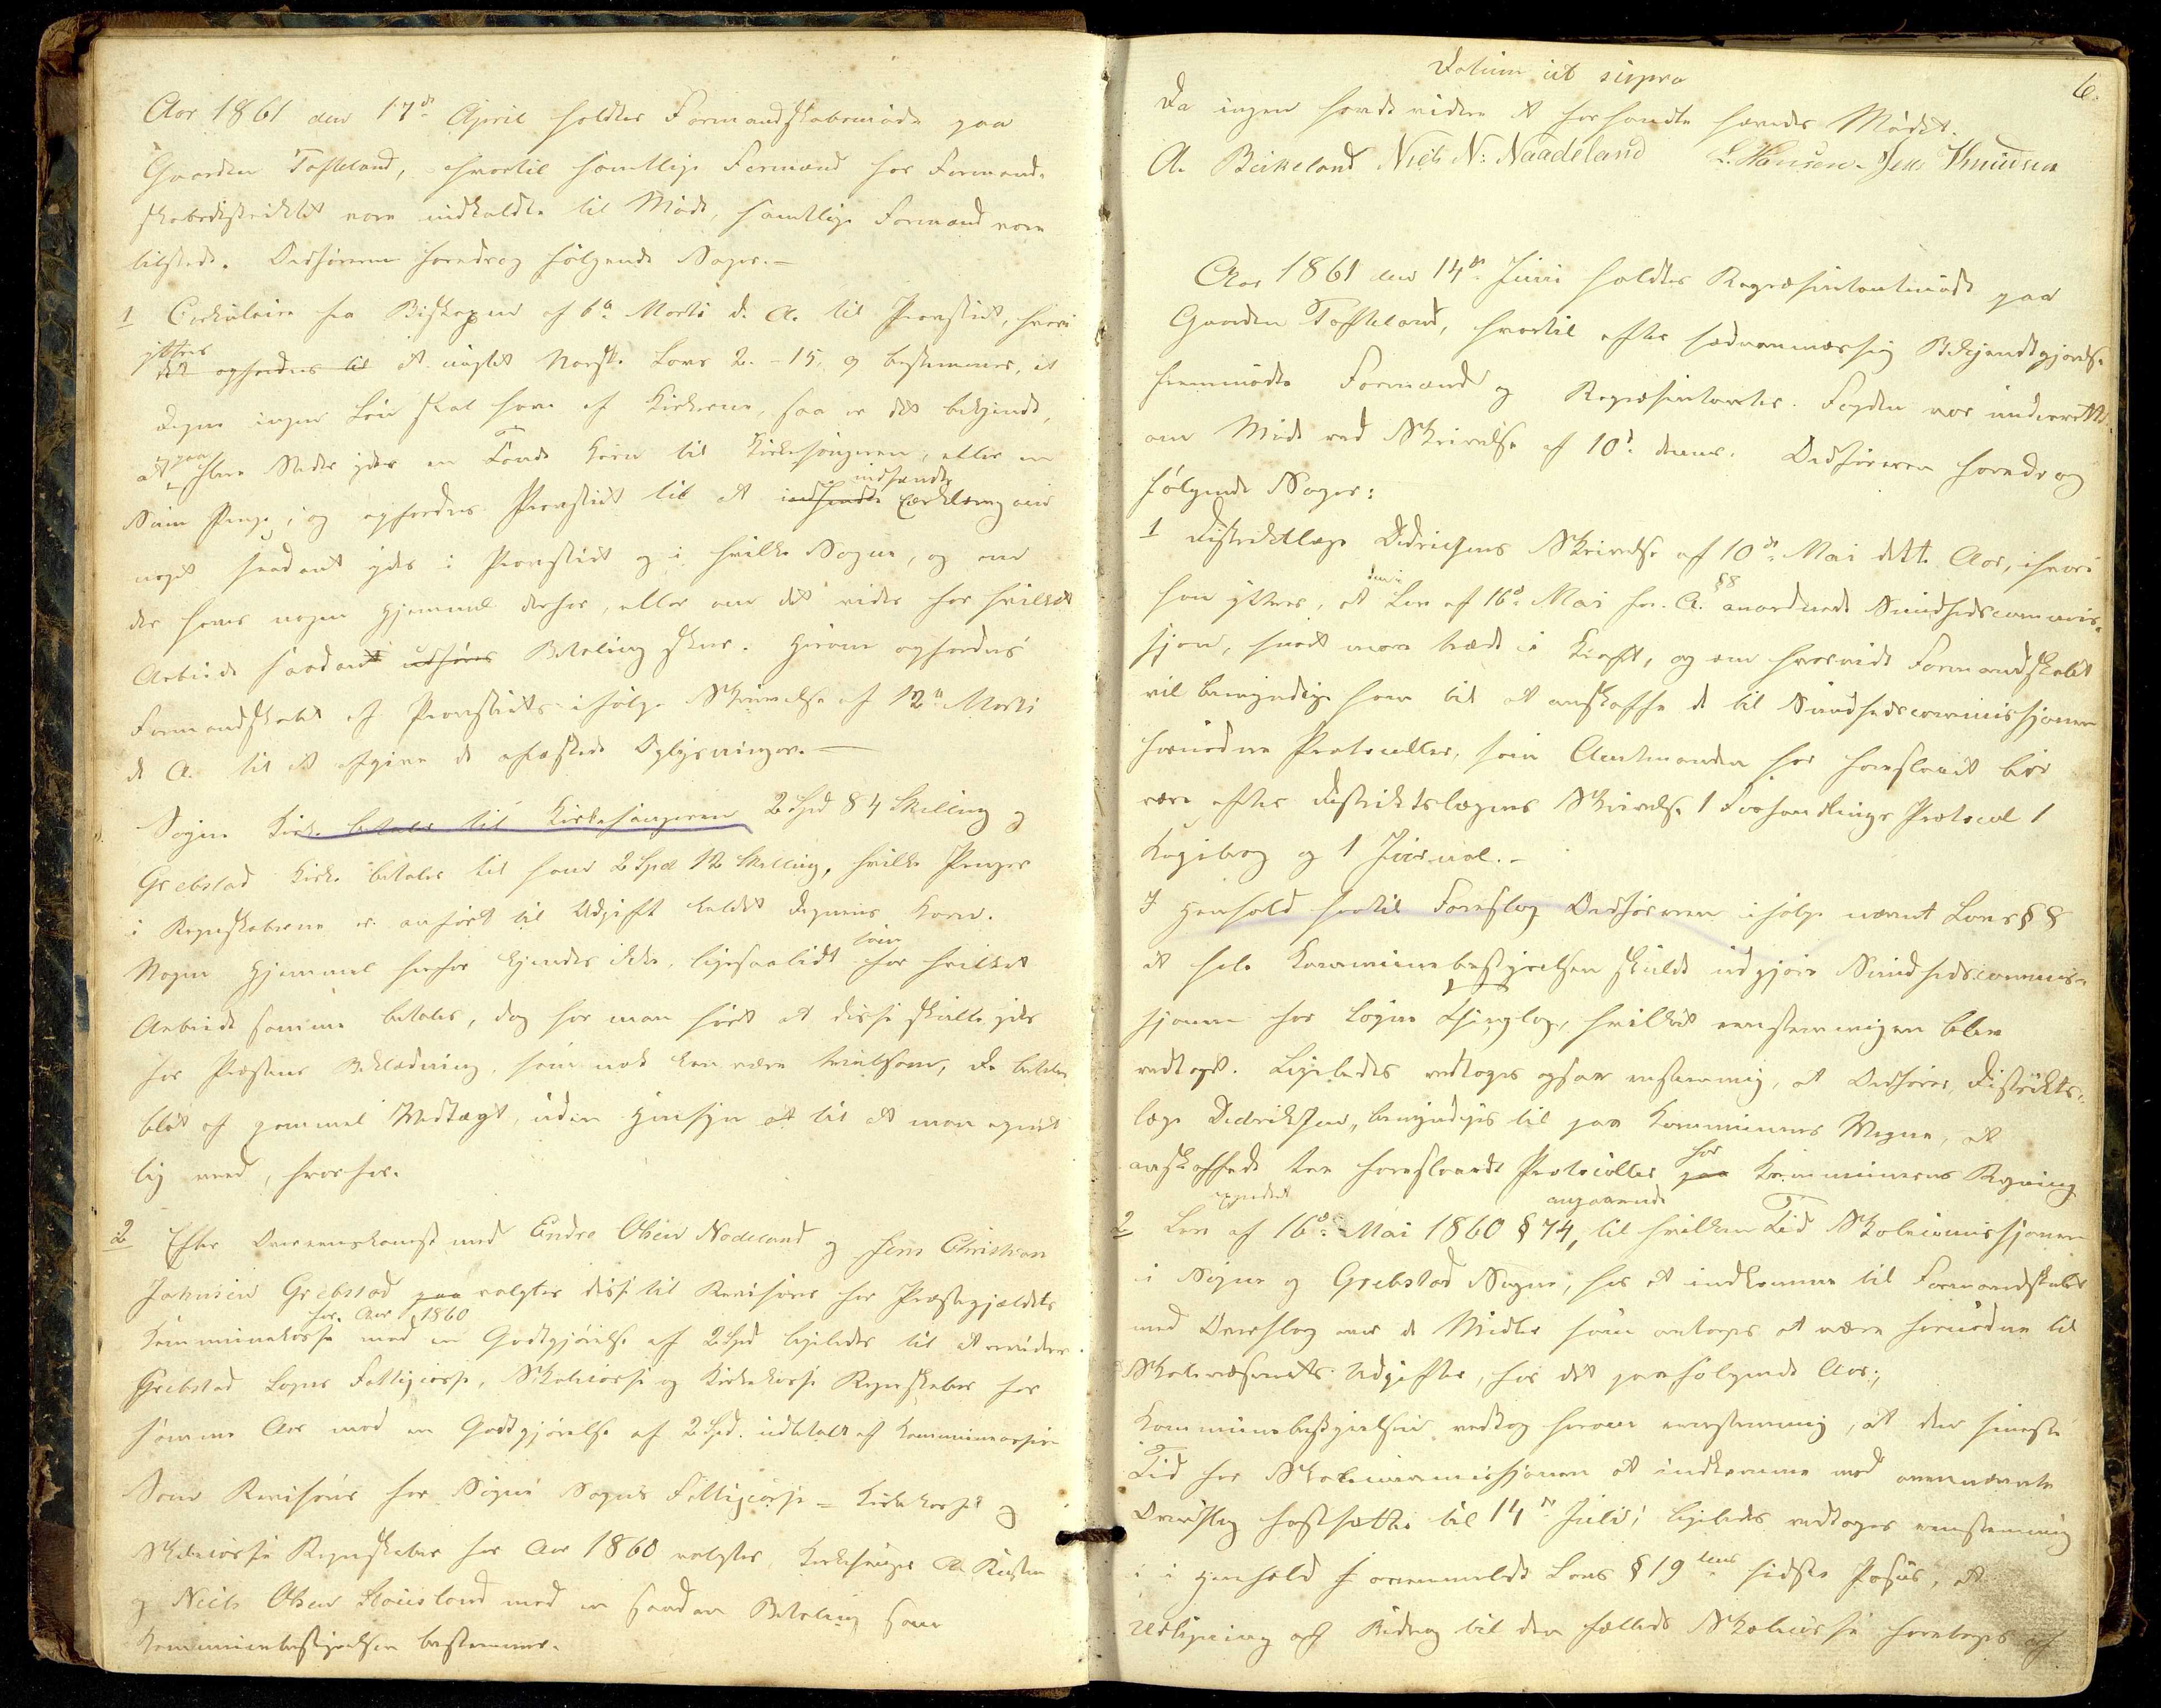 Aar 1861 den 17de April holdtes Formandskabsmøde paa
Gaarden Tofteland, hvortil samtlige Formænd for Formand-
skabsdistriktet vare indkaldte til Møde, samtlige Formænd vare
tilstede. Ordføreren foredrog følgende Sager.—
1 Cirkulaire fra Biskopen af 6te Marts d. A. til Provstiet, hvori
yttres
det opfordres til at uagtet Norske Lovs 2.-15. 9 bestemmer, at
Degne ingen Løn skal have af Kirkerne, saa er det bekjendt,
at paa flere Steder ydes en Tønde Korn til Kirkesangeren, eller en
indsænde
Sum Penge, og opfordres Provstiet til at indhente Erklæring om
noget saadant ydes i Provstiet og i hvilke Sogne, og om
der haves nogen Hjemmel derfor, eller om det vides for hvilket
Arbeide saadant udføres Betaling sker. Herom opfordres
Formandskabet af Provstiet ifølge Skrivelse af 12te Marts
d. A. til at afgive de afæskede Oplysninger.—
Søgne Kirke betaler til Kirkesangeren 2 Spd 84 Skilling og
Grebstad Kirke betaler til ham 2 Spd 12 Skilling, hvilke Penger
i Regnskaberne er anført til Udgift kaldet Degnens Korn.
Nogen Hjemmel herfor kjendes ikke, ligesaalidt som for hvilket
Arbeide samme betales, dog har man hørt at disse skulle ydes
for Præstens Beklædning, som nok kan være tvivlsom, da betales
blot af gammel Vedtægt, uden Hensyn at til at man egent-
lig veed, hvorfor.
2 Efter Overenskomst med Endre Olsen Nodeland og Jens Christian
Johnsen Grebstad paa valgtes disse til Revisorer for Præstegjældets
for Aar 1860
Kommunekasse med en Godtgjørelse af 2 Spd ligeledes til at revidere
Grebstad Sogns Fattigkasse, Skolekasse og Kirkekasse Regnskaber for
samme Aar mod en Godtgjørelse af 2 Spd. udbetalt af Kommunekassen
Som Revisorer for Søgne Sogns Fattigkasse - Kirkekasse og
Skolekasse Regnskaber for Aar 1860 valgtes Kirkesanger A.
og Niels Olsen med en saadan Betaling som
Kommunebestyrelsen bestemmer.
6.
Datum ut supra
Da ingen havde videre at forhandle hævedes Mødet.
A. Birkeland Niels N: Naadeland L. Hansen- Jens Knudsen
Aar 1861 den 14de Juni holdtes Repræsentantmøde paa
Gaarden Tofteland, hvortil efter sædvanmæssig Bekjendtgjørelse
fremmødte Formænd og Repræsentanter. Fogden var underrettet
om Møde ved Skrivelse af 10de dennes. Ordføreren foredrog
følgende Sager:
1 Distriktlæge Didrichsens Skrivelse af 10de Mai dette Aar, hvori
han yttrer, at den i Lov af 16de Mai for. A. §8 anordnede Sundhedscommis-
sjon, snart maa træde i Kraft, og om hvorvidt Formandskabet
vil bemyndige ham til at anskaffe de til Sundhedscommissjonen
fornødne Protocoller, som Amtmanden har foreslaaet bør
være efter Distriktslægens Skrivelse 1 Forhandlings Protocol 1
Kopibog og 1 Journal.-
I Henhold hertil Foreslog Ordføreren ifølge nævnt Lovs §8
at hele Kommunebestyrelsen skulde udgjøre Sundhedscommis-
sjonen for Søgne Thinglag, hvilket eenstemmigen blev
vedtaget. Ligeledes vedtoges ogsaa eenstemmig, at Ordfører, Distrikts-
læge Didriksen, bemyndiges til paa Kommunens Vegne, at
for
anskaffede tre foreslaaede Protocoller paa Kommunens Regning
angaaende
2 Lov af 16de Mai 1860 §74, til hvilken Tid Skolecomissjonen
i Søgne og Grebstad Sogne, har at indkomme til Formandskabet
med Overslag over de Midler som antages at være fornødne til
Skolevæsenets Udgifter, for det paafølgende Aar;
Kommunebestyrelsen vedtog herom eenstemmig, at den seneste
Tid for Skolecommissjonen at indkomme med ovennævnte
Overslag fastsættes til 14de Juli; ligeledes vedtoges eenstemmig
i i Henhold f ovenmeldte Lovs §19 tens sidste Passus, at
Udligning af Bidrag til den fælleds Skolekasse foretages af